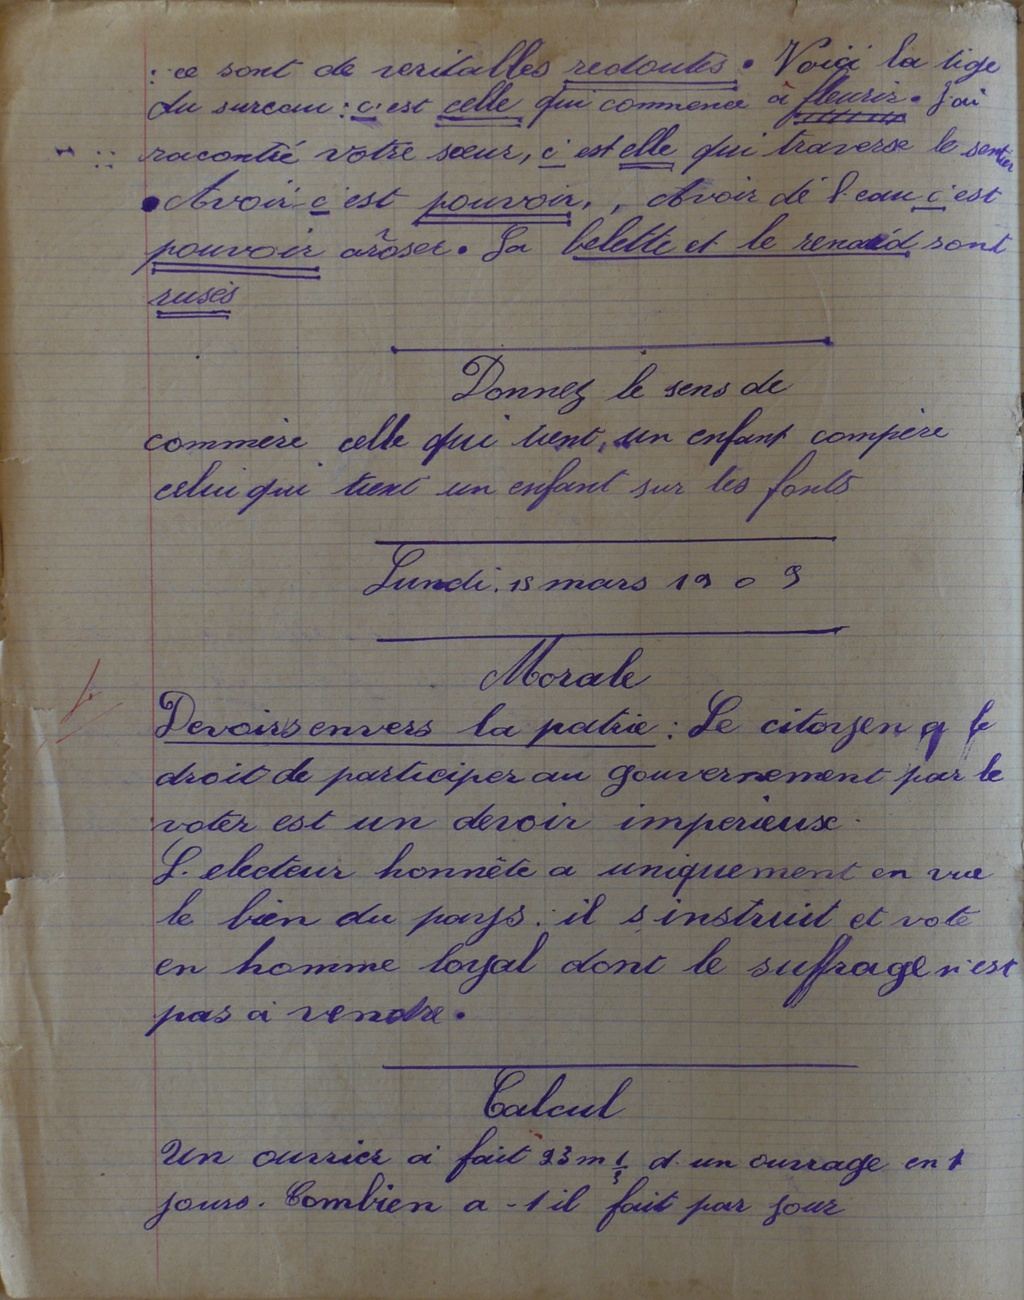 : ce sont de veritables redoutes. Voici la tige
du sureau : c'est celle qui commence à fleurir. J'ai
racontré votre sœur, c'est elle qui traverse le sentier
. Avoir c'est pouvoir. , Avoir de l'eau c'est
pouvoir aroser. La belette et le renard sont
rusés
Donnez le sens de
commère celle qui tient un enfant compère
celui qui tient un enfant sur les fonts
Lundi. 15 mars 1909
Morale
Devoirs envers la patrie : Le citoyen a le
droit de participer au gouvernement par le
voter est un devoir imperieux.
L'electeur honnête a uniquement en vue
le bien du pays : il s'instruit et vote
en homme loyal dont le suffrage n'est
pas à vendre.
Calcul
Un ouvrier a fait 23m d'un ouvrage en
jours. Combien a-t il fait par jour